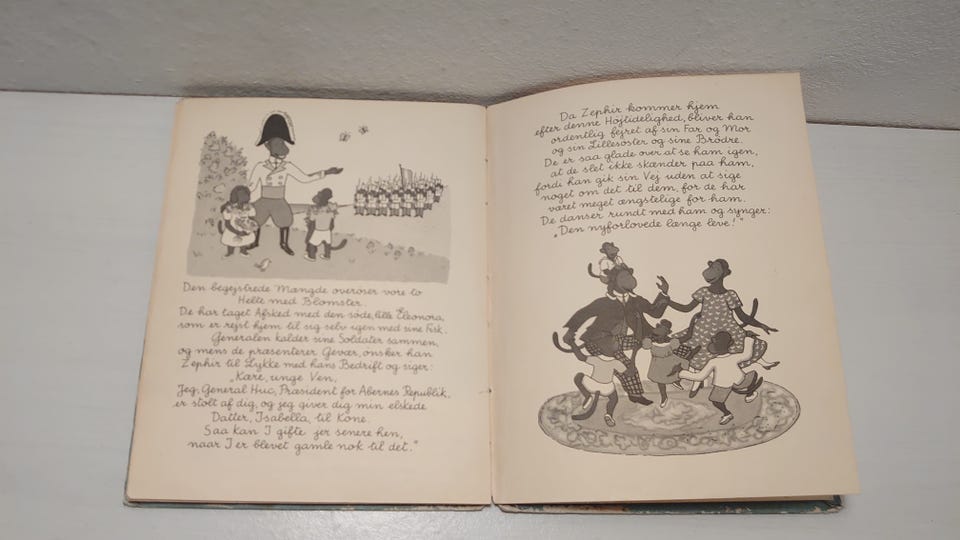 Den begejstrede Mængde overøser vore to
Helte med Blomster.
De har taget Afsked med den søde, lille Eleonora,
som er rejst hjem til sig selv igen med sine Fisk.
Generalen kalder sine Soldater sammen,
og mens de præsenterer Gevær, ønsker han
Zephir til Lykke med hans Bedrift og siger:
„Kære, unge Ven,
Jeg, General Huc, Præsident for Abernes Republik,
er stolt af dig, og jeg giver dig min elskede
Datter, Isabella, til Kone.
Saa kan I gifte jer senere hen,
naar I er blevet gamle nok til det."
Da Zephir kommer hjem
efter denne Højtidelighed, bliver han
ordentlig fejret af sin Far og Mor
og sin Lillesøster og sine Brødre.
De er saa glade over at se ham igen,
at de slet ikke skænder paa ham,
fordi han gik sin Vej uden at sige
noget om det til dem, for de har
været meget ængstelige for ham.
De danser rundt med ham og synger:
„Den nyforlovede længe leve!"